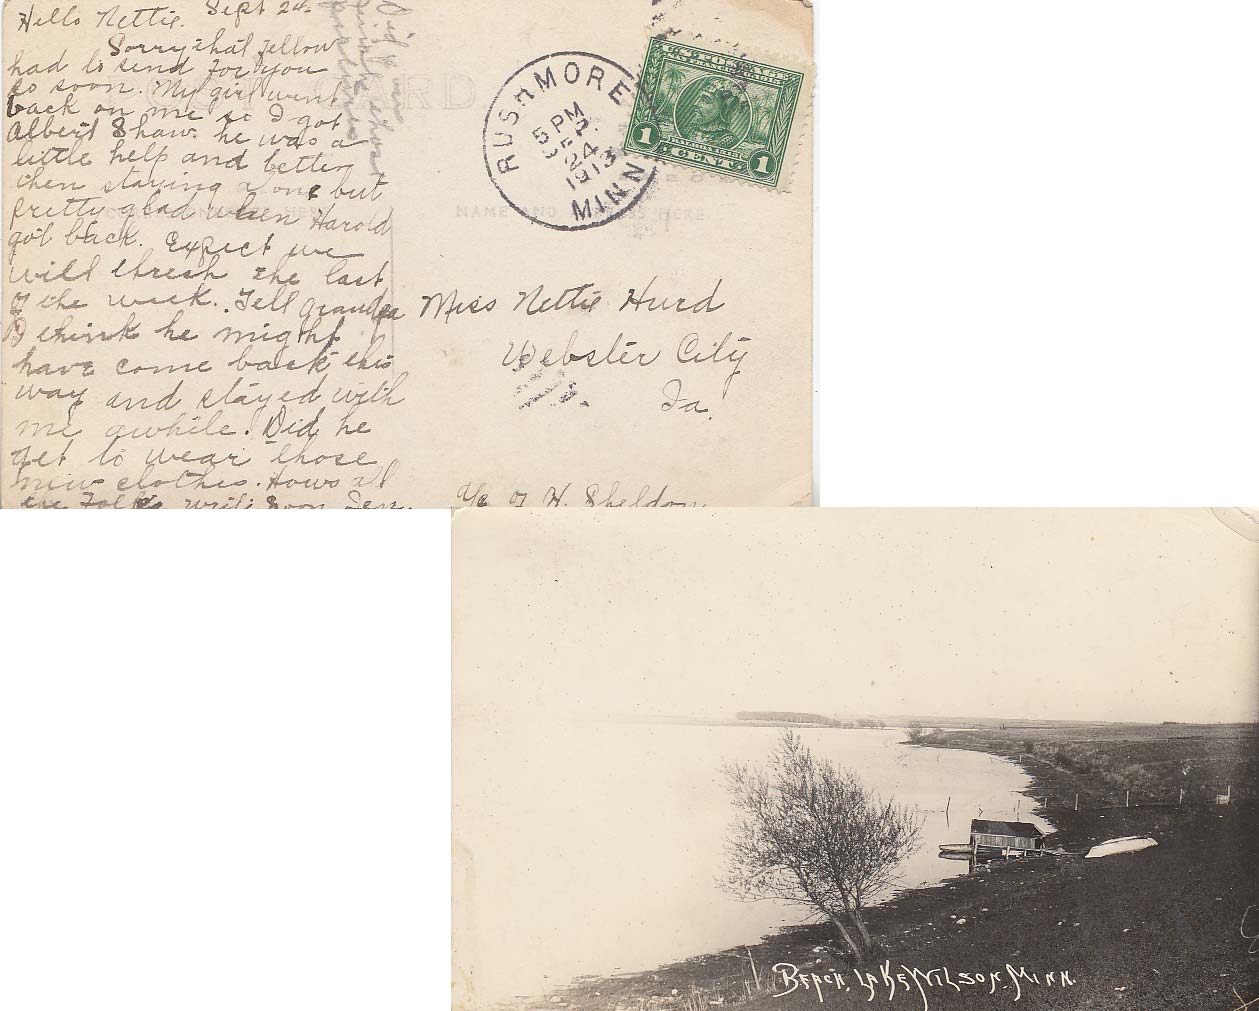 Hello Nettie. Sept 24.
Sorry that fellow
had to send for you
so soon. My girl went
back on me so I got
Albert Shaw. he was a
little help and better
then staying alone but
pretty glad when Harold
got back. Expect we
will thresh the last
of the week. Tell grandpa
I think he might
have come back this
way and stayed with
me awhile. Did he
get to wear those
new clothes. Hows all
the Folks write soon Jen.
Did you
find those
pictures
POST CARD
NAME AND ADDRESS HERE
RUSHMORE
MINN
5 PM
SEP
24
1913
1 CENT 1
Miss Nettie Hurd
Webster City
Ia.
c/o of H. Sheldon
BEACH, LAKE WILSON, MINN.